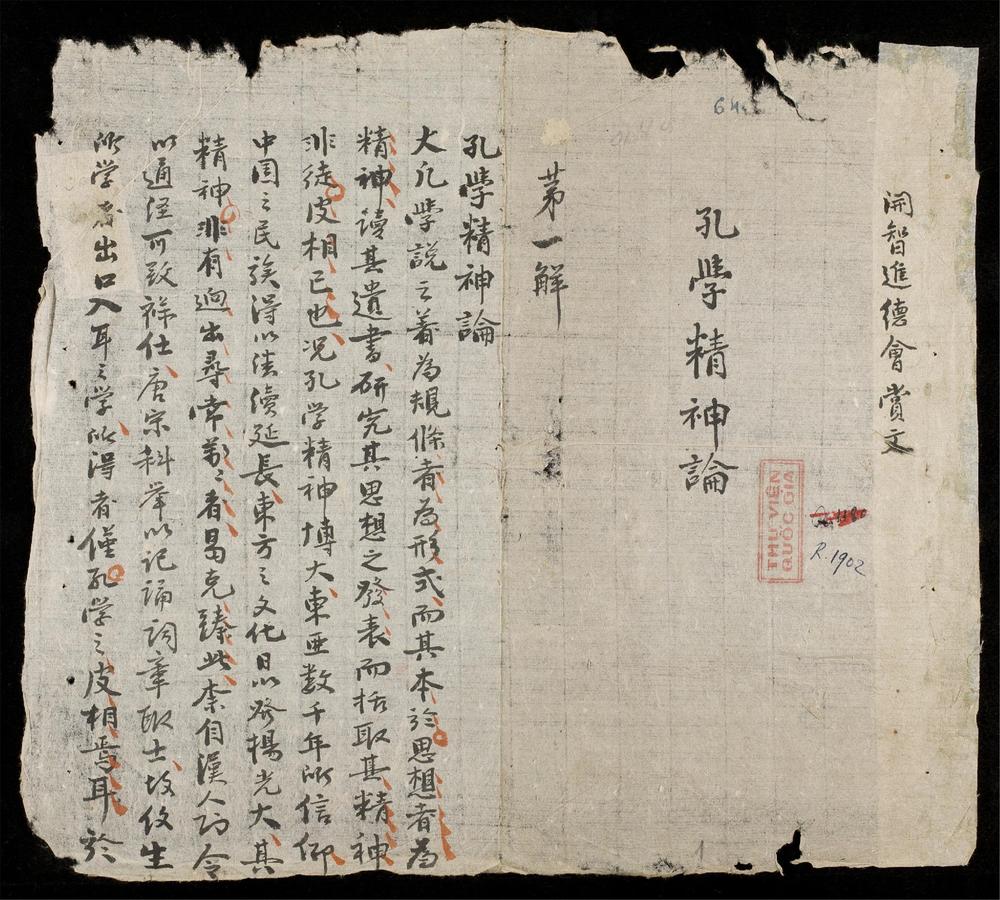 開智進德會 賞文
孔學精神論
THƯ VIỆN
QUỐC GIA
R.1902
64
第一解
孔學精神論
大凡學説之着為規條者為形式而其本於思想者為
精神讀其遺書研究其思想之發表而括取其精神
非徒皮相已也况孔学精神博大東亜数千年所信仰
中国之民族得以续續延長東方之文化日以發揚光大其
精神非有迥出尋常萬々者曷克臻此柰自漢人以
以通经可致祿仕唐宗科举以记誦詞章取士故後生
所学者出口入耳之学所得者僅孔学之皮相焉耳於
1